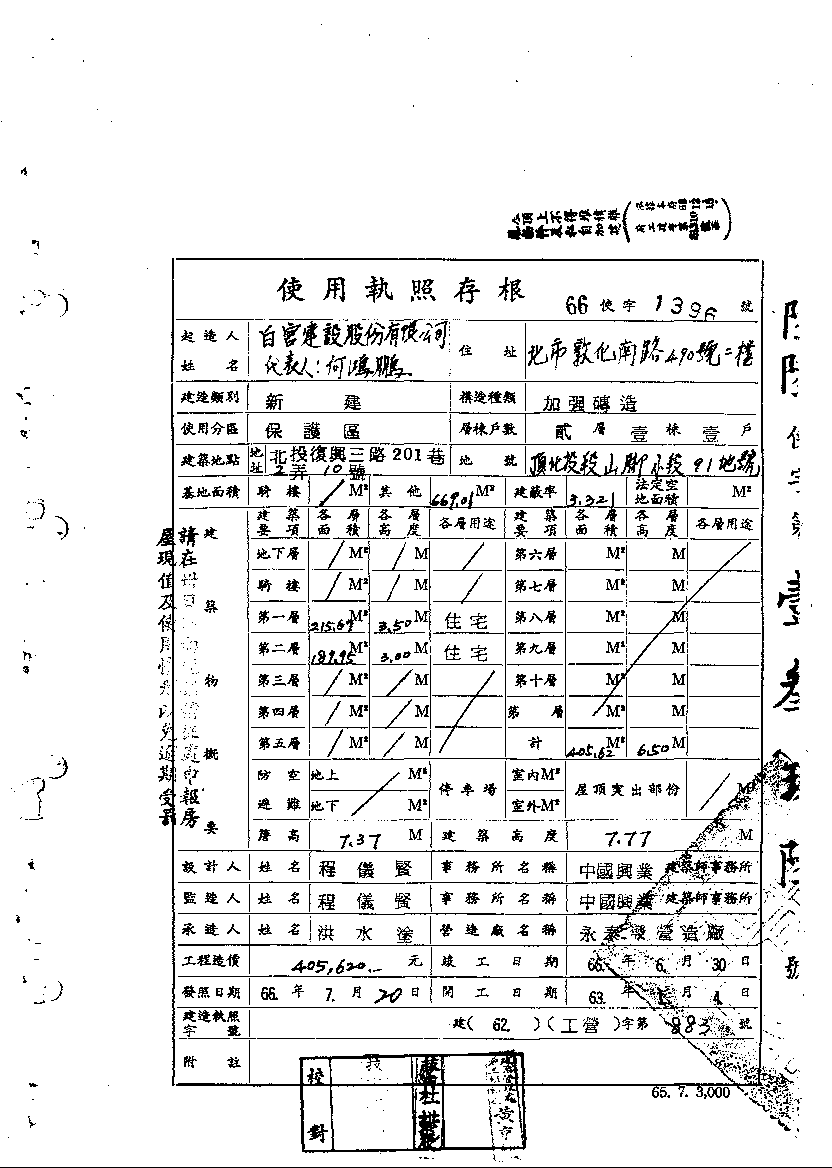 使用執照存根
66 使字 1396 號
起造人姓名 白宮建設股份有限公司 代表人：何鴻鵬 住址 北市敦化南路490號二樓
建造類別 新建 構造種類 加强磚造
使用分區 保護區 層棟戶數 貳層壹棟壹戶
建築地點 地址 北投復興三路201巷2弄10號 地號 頂北投段山腳小段91地號
基地面積 騎樓 / M² 其他 669.01 M² 建蔽率 3.321 法定空地面積 M²
建築物概要
建築要項 各層面積 各層高度 各層用途 建築要項 各層面積 各層高度 各層用途
地下層 / M² / M / 第六層 M² M
騎樓 / M² / M / 第七層 M² M
第一層 215.67 M² 3.50 M 住宅 第八層 M² M
第二層 189.95 M² 3.00 M 住宅 第九層 M² M
第三層 / M² / M 第十層 M² M
第四層 / M² / M 第 層 M² M
第五層 / M² / M 計 405.62 M² 6.50 M
防空避難 地上 M² 地下 M² 停車場 室內 M² 室外 M² 屋頂突出部份 / M²
簷高 7.37 M 建築高度 7.77 M
設計人 姓名 程儀賢 事務所名稱 中國興業 建築師事務所
監造人 姓名 程儀賢 事務所名稱 中國興業 建築師事務所
承造人 姓名 洪水塗 營造廠名稱 永泰發營造廠
工程造價 405,620.- 元 竣工日期 66. 年 6. 月 30 日
發照日期 66. 年 7. 月 20 日 開工日期 63. 年 1. 月 4. 日
建造執照字號 建( 62. )(工營)字第 883 號
附註
校對
65. 7. 3,000
請在
申報房
屋現值及使用
以免逾期受罰